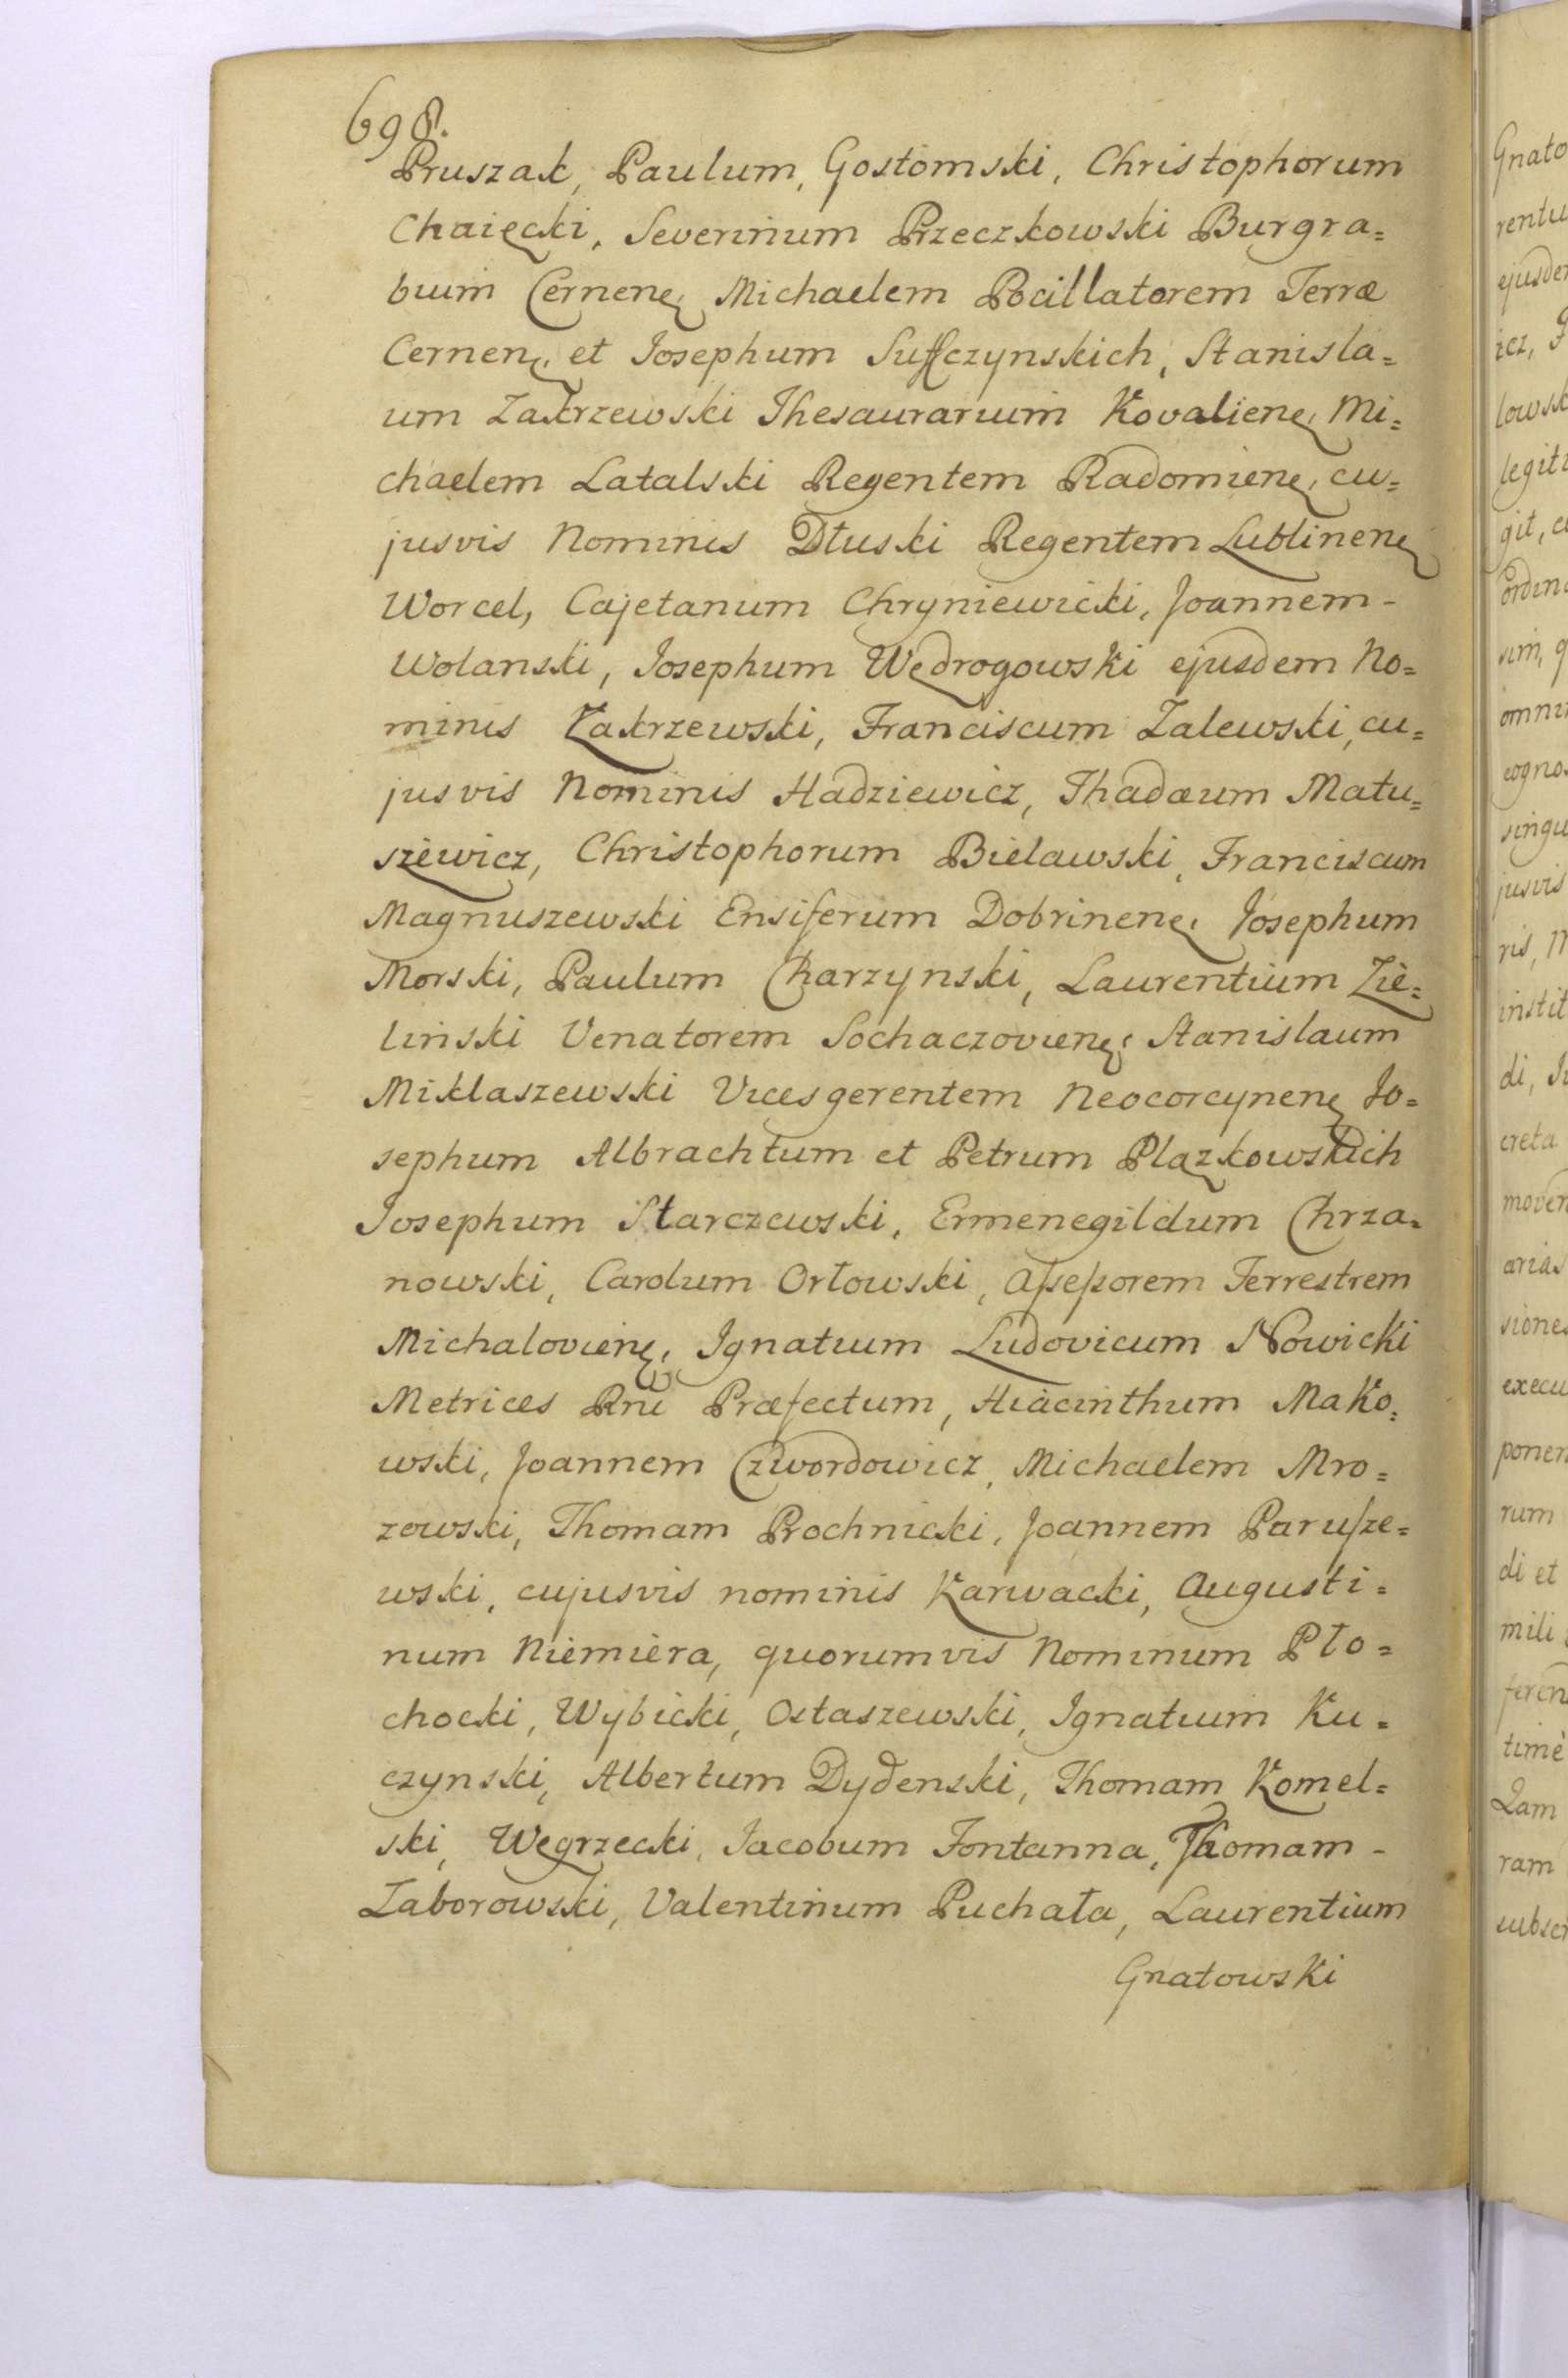 698.
Pruszak, Paulum, Gostomski, Christophorum
Chaięcki, Severinum Przeczkowski Burgra=
bium Cernenę, Michaelem Pocillatorem Terræ
Cernenę, et Josephum Suffczynskich, Stanisla=
um Zakrzewski Thesaurarium Kovalienę, Mi=
chaelem Latalski Regentem Radomienę, cu=
jusvis Nominis Dłuski Regentem Lublinenę
Worcel, Cajetanum Chryniewicki, Joannem-
Wolanski, Josephum Wędrogowski ejusdem No=
minis Zakrzewski, Franciscum Zalewski, cu=
jusvis Nominis Hadziewicz, Thadæum Matu=
szewicz, Christophorum Bielawski, Franciscum
Magnuszewski Ensiferum Dobrinenę, Josephum
Morski, Paulum Charzynski, Laurentium Zie=
linski Venatorem Sochaczovienę, Stanislaum
Miklaszewski Vicesgerentem Neocorcynenę Jo=
sephum Albrachtum et Petrum Plązkowskich
Josephum Starczewski, Ermenegildum Chrza=
nowski, Carolum Orłowski, Aſseſsorem Terrestrem
Michalovienę, Ignatium Ludovicum Nowicki
Metrices Rni Præfectum, Hiacinthum Mako=
wski, Joannem Czwordowicz, Michaelem Mro=
zowski, Thomam Prochnicki, Joannem Paruſze=
wski, cujusvis nominis Karwacki, Augusti=
num Niemiera, quorumvis Nominum Pło=
chocki, Wybicki, Ostaszewski, Ignatium Ku=
czynski, Albertum Dydenski, Thomam Komel=
ski, Węgrzecki, Jacobum Fontanna, Thomam-
Zaborowski, Valentinum Puchała, Laurentium
Gnatowski
Gnato
rentu
ejusde
icz,
lowsk
legit
git,
ordin
sim,
omni
cogno
singu
jusvis
ris,
instit
di,
creta
moven
arias
siones
execu
ponen
rum
di et
mili
feren
time
Qam
ram
subscr